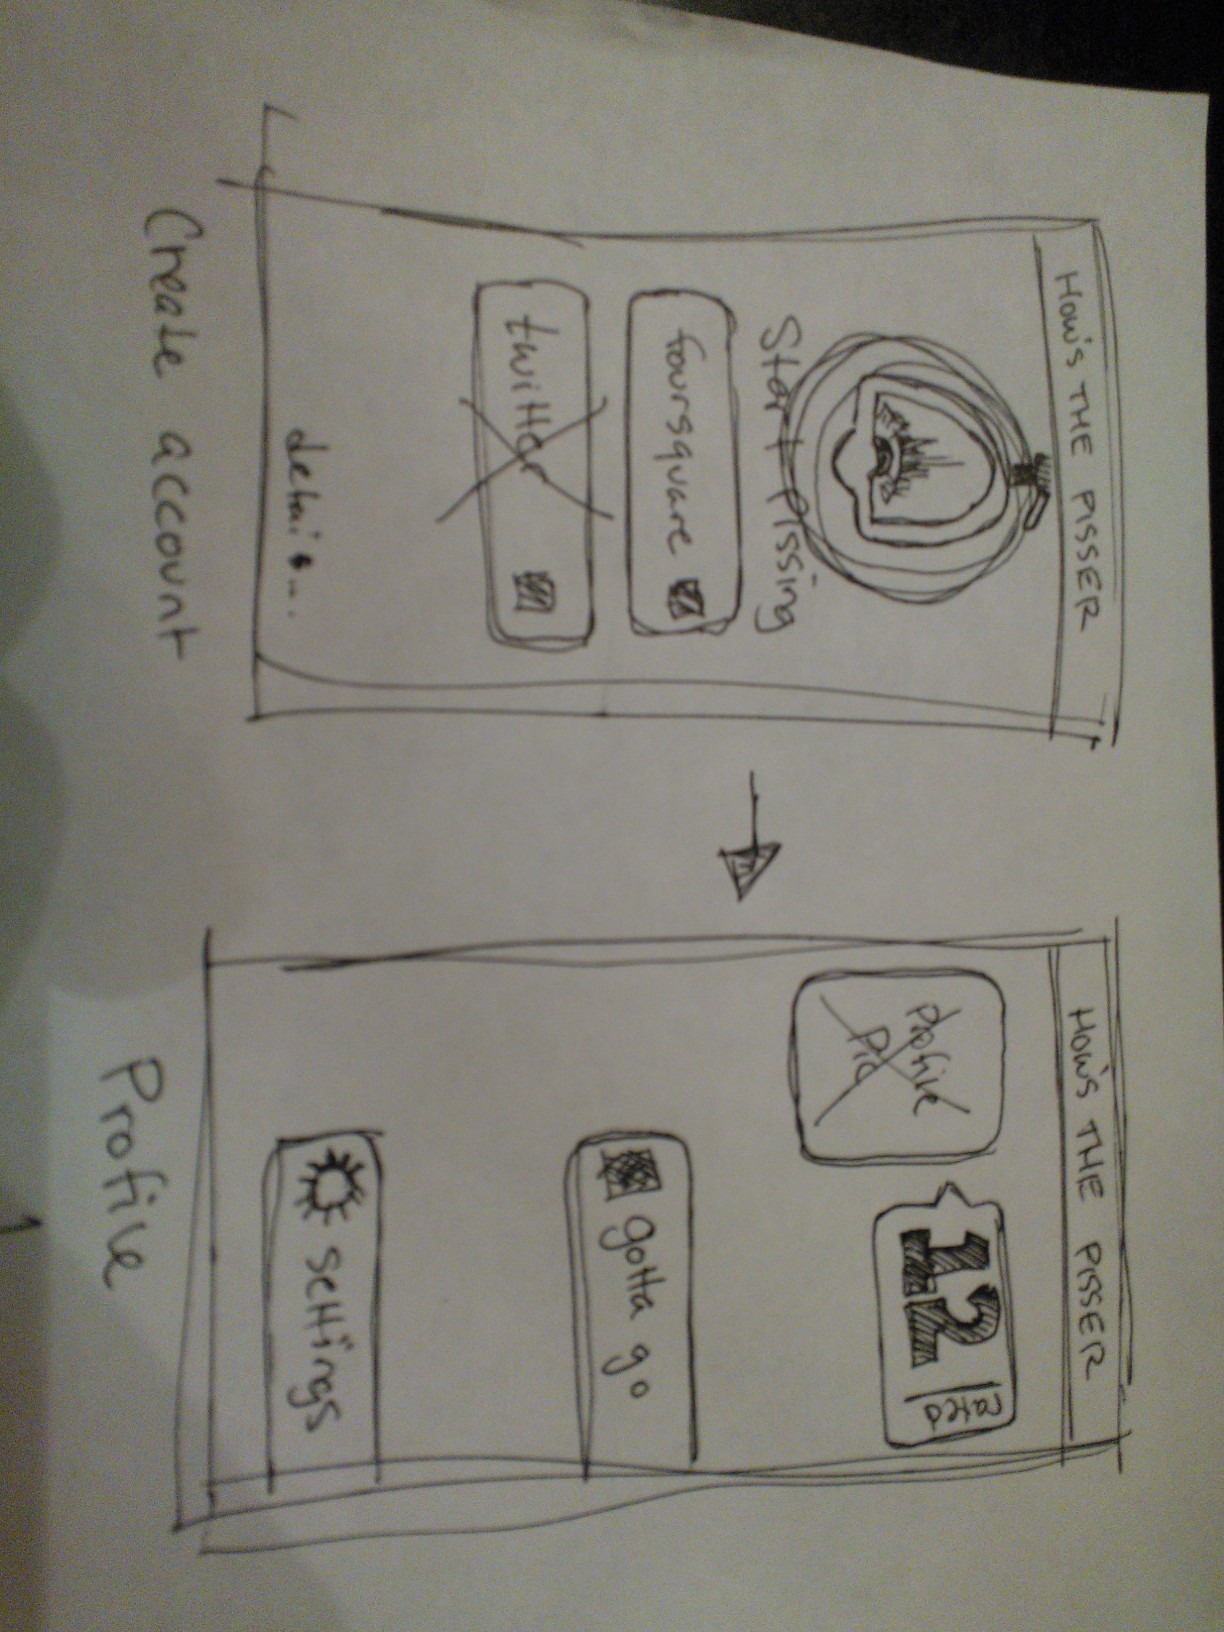 HOW'S THE PISSER
Start Pissing
foursquare
twitter
Create account
HOW'S THE PISSER
Profile
Pic
12
rated
gotta go
settings
Profile